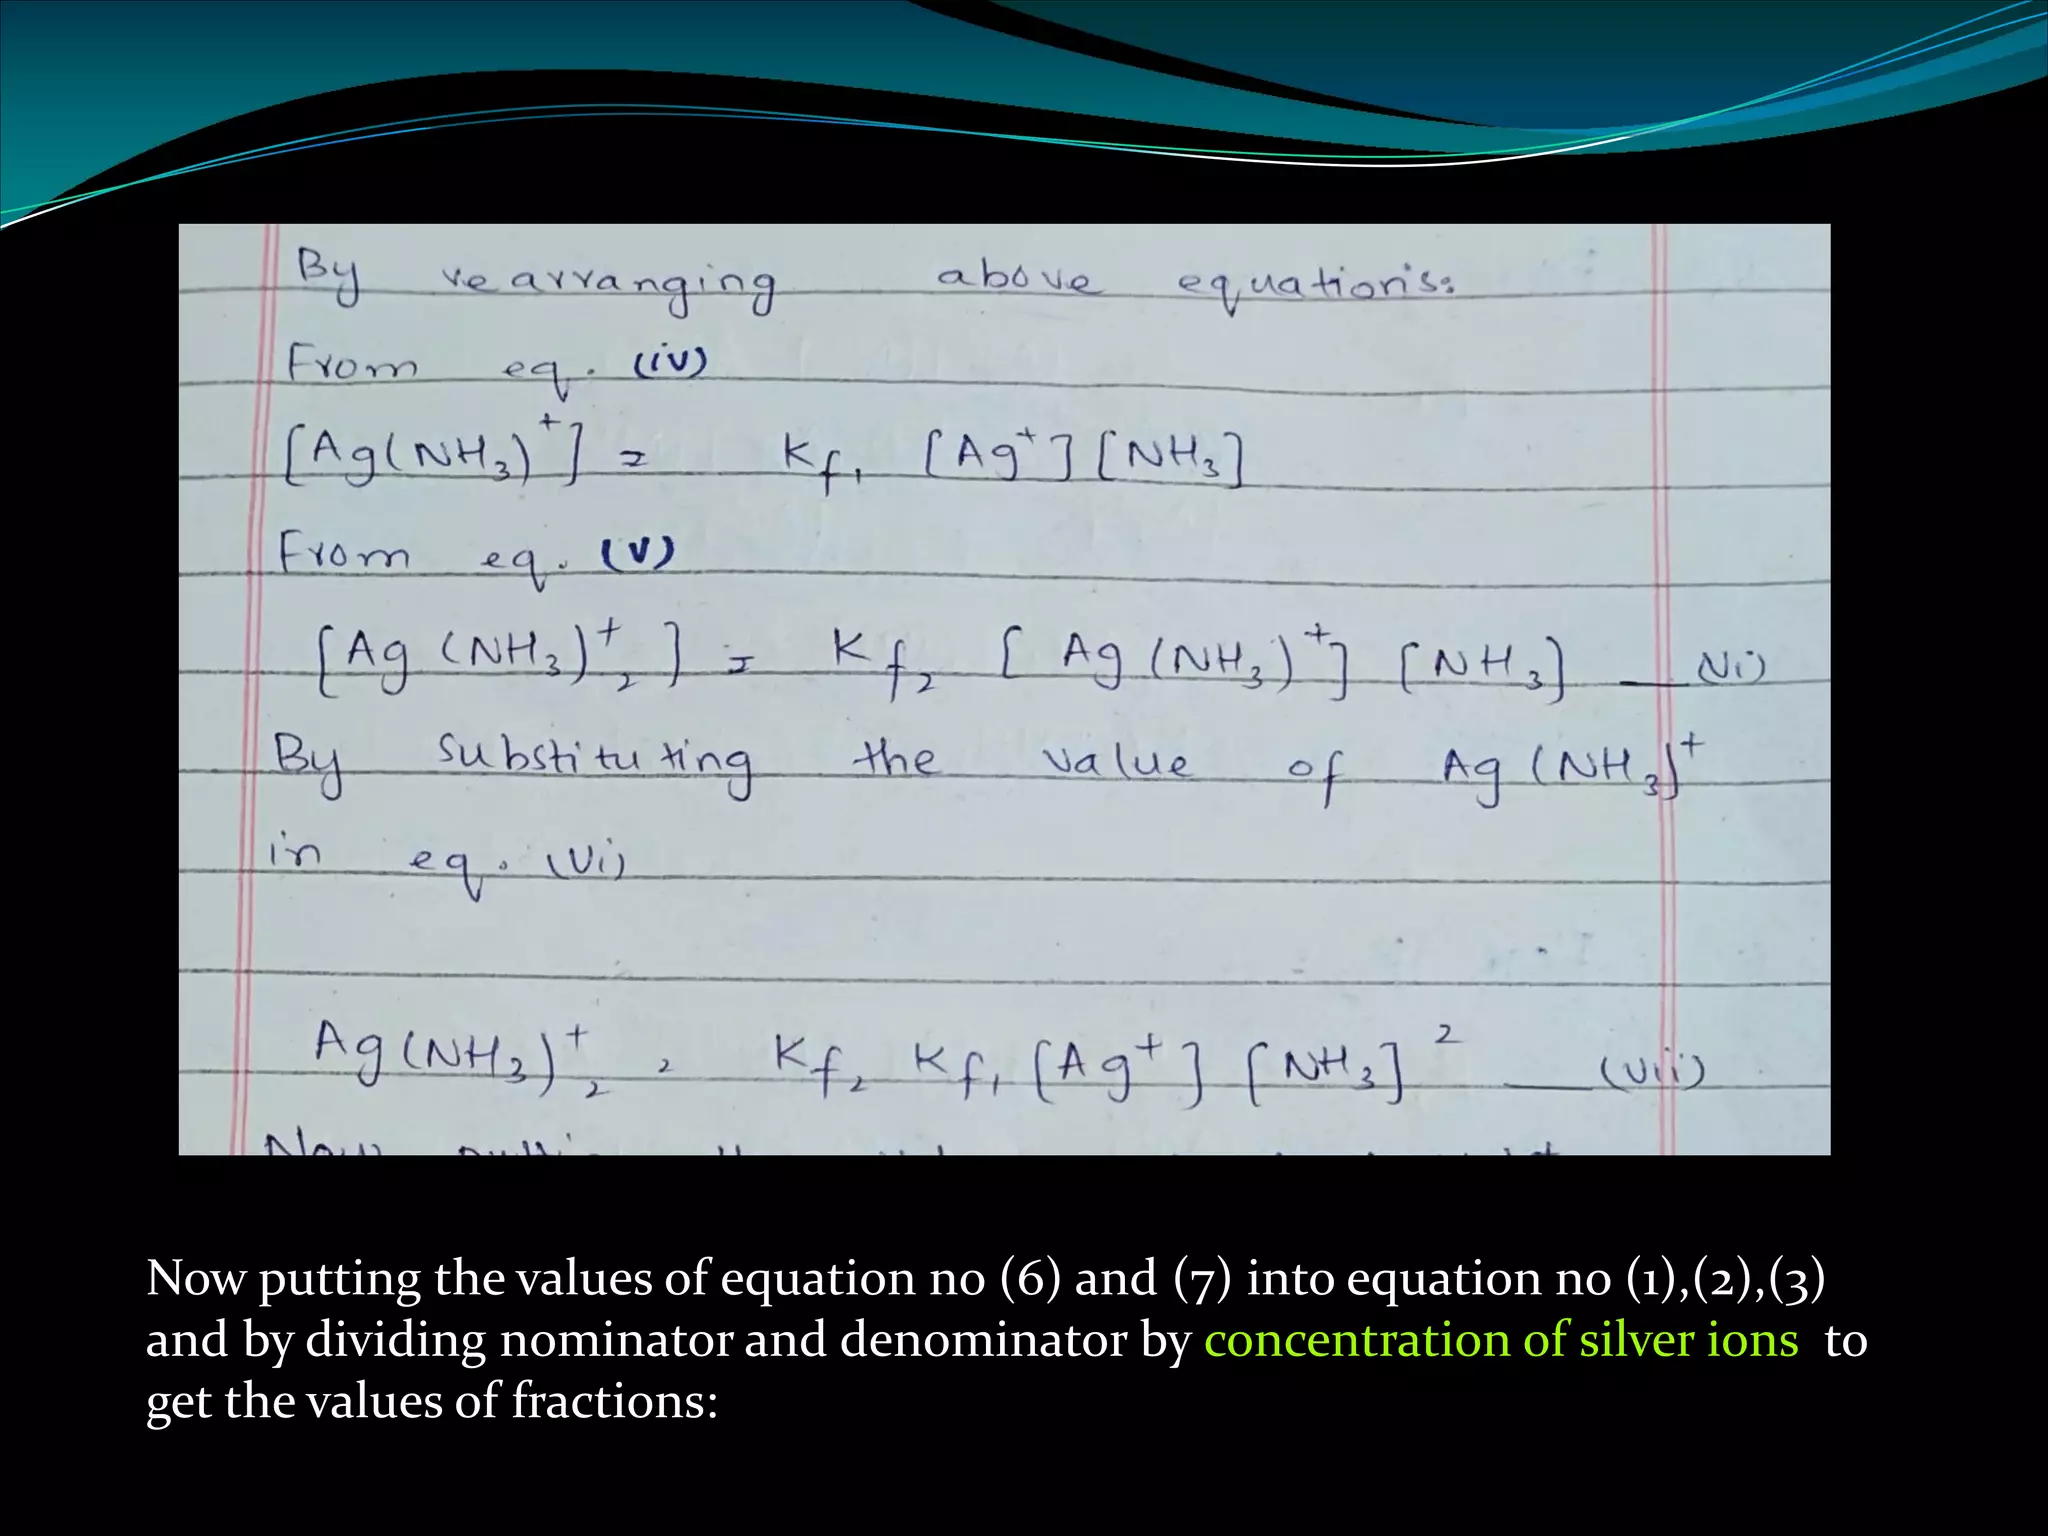 By rearranging above equation's:
From eq. (iv)
[Ag(NH₃)⁺] = Kf₁ [Ag⁺] [NH₃]
From eq. (v)
[Ag (NH₃)₂⁺] = Kf₂ [Ag (NH₃)⁺] [NH₃] — (vi)
By substituting the value of Ag (NH₃)⁺
in eq. (vi)
Ag(NH₃)₂⁺ = Kf₂ Kf₁ [Ag⁺] [NH₃]² — (vii)
Now putting the
Now putting the values of equation no (6) and (7) into equation no (1),(2),(3)
and by dividing nominator and denominator by concentration of silver ions to
get the values of fractions: